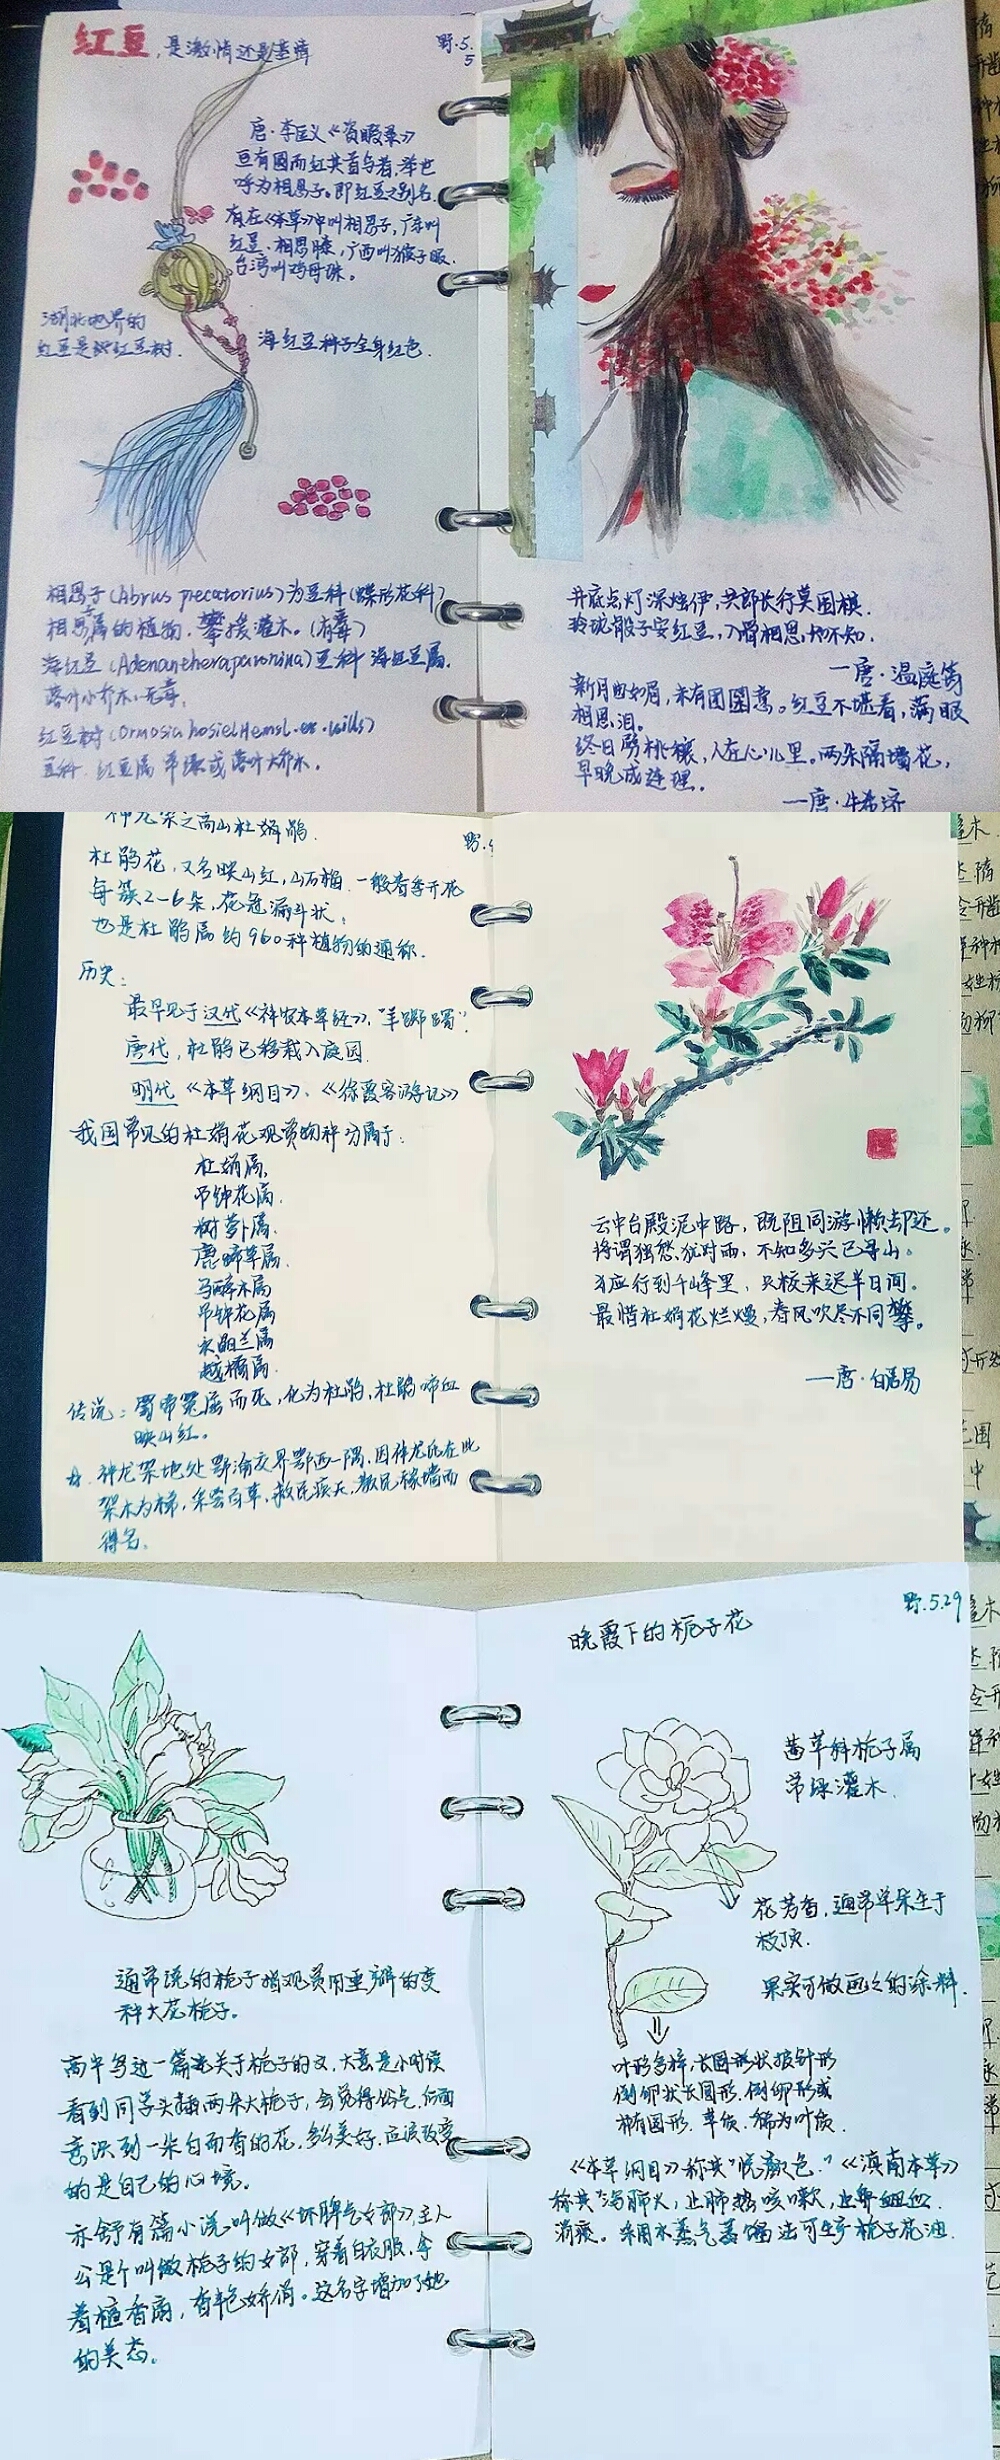 红豆，是激情还是基情
野.5.5
唐·李匡义《资暇集》
豆有圆而红其首乌者,举世
呼为相思子。即红豆之别名.
有在《本草》中叫相思子,广东叫
红豆、相思藤,广西叫猴子眼.
台湾叫鸡母珠。
湖北地界的
红豆是
红豆树.
海红豆种子全身红色.
相思子(Abrus precatorius)为豆科(蝶形花科)
相思属的植物.攀援灌木。(有毒)
海红豆(Adenantherapavonina)豆科 海红豆属.
落叶小乔木.无毒.
红豆树(Ormosia hosieiHemsl.et.wills)
豆科.红豆属 常绿或落叶大乔木.
井底点灯深烛伊,共郎长行莫围棋.
玲珑骰子安红豆,入骨相思知不知.
—唐·温庭筠
新月曲如眉,未有团圞意。红豆不堪看,满眼
相思泪。
终日劈桃穰,人在心儿里。两朵隔墙花,
早晚成连理.
—唐·牛希济
神龙架之高山杜鹃鹃.
野.
杜鹃花,又名映山红,山石榴.一般春季开花
每簇2-6朵,花冠漏斗状;
也是杜鹃属约960种植物的通称.
历史:
最早见于汉代《神农本草经》,"羊踯躅".
唐代,杜鹃已移栽入庭园.
明代《本草纲目》、《徐霞客游记》
我国常见的杜鹃花观赏物种分属于:
杜鹃属.
吊钟花属.
树萝卜属.
鹿蹄草属.
马醉木属
吊钟花属
水晶兰属
越橘属.
传说:蜀帝冤屈而死,化为杜鹃,杜鹃啼血
映山红。
神龙架地处鄂渝交界鄂西一隅,因神龙氏在此
架木为梯,采尝百草,救民疾夭,教民稼墙而
得名。
云中台殿泥中路,既阻同游懒却还。
将谓独愁犹对雨,不知多兴已寻山。
才应行到千峰里,只校来迟半日间。
最惜杜鹃花烂熳,春风吹尽不同攀。
—唐·白居易
野.5.29
晚霞下的栀子花
茜草科栀子属
常绿灌木.
花芳香,通常单朵生于
枝顶.
果实可做画之的涂料.
叶形多样,长圆形状披针形
倒卵状长圆形.倒卵形或
椭圆形.革质.稀为叶质.
《本草纲目》称其"悦颜色."《滇南本草》
称其"泻肺火,止肺热咳嗽,止鼻衄血.
消痰。采用水蒸气蒸馏法可生产栀子花油.
通常说的栀子指观赏用重瓣的变
种大花栀子。
高中写过一篇关于栀子的文,大意是小时候
看到同学头插两朵大栀子,会觉得俗气.后面
意识到一朵白而香的花,多么美好.应该改变
的是自己的心境。
亦舒有篇小说叫做《坏脾气女郎》,主人
公是个叫做栀子的女郎,穿着白衣服,拿
着檀香扇,香艳娇俏。这名字增加了她
的美态。